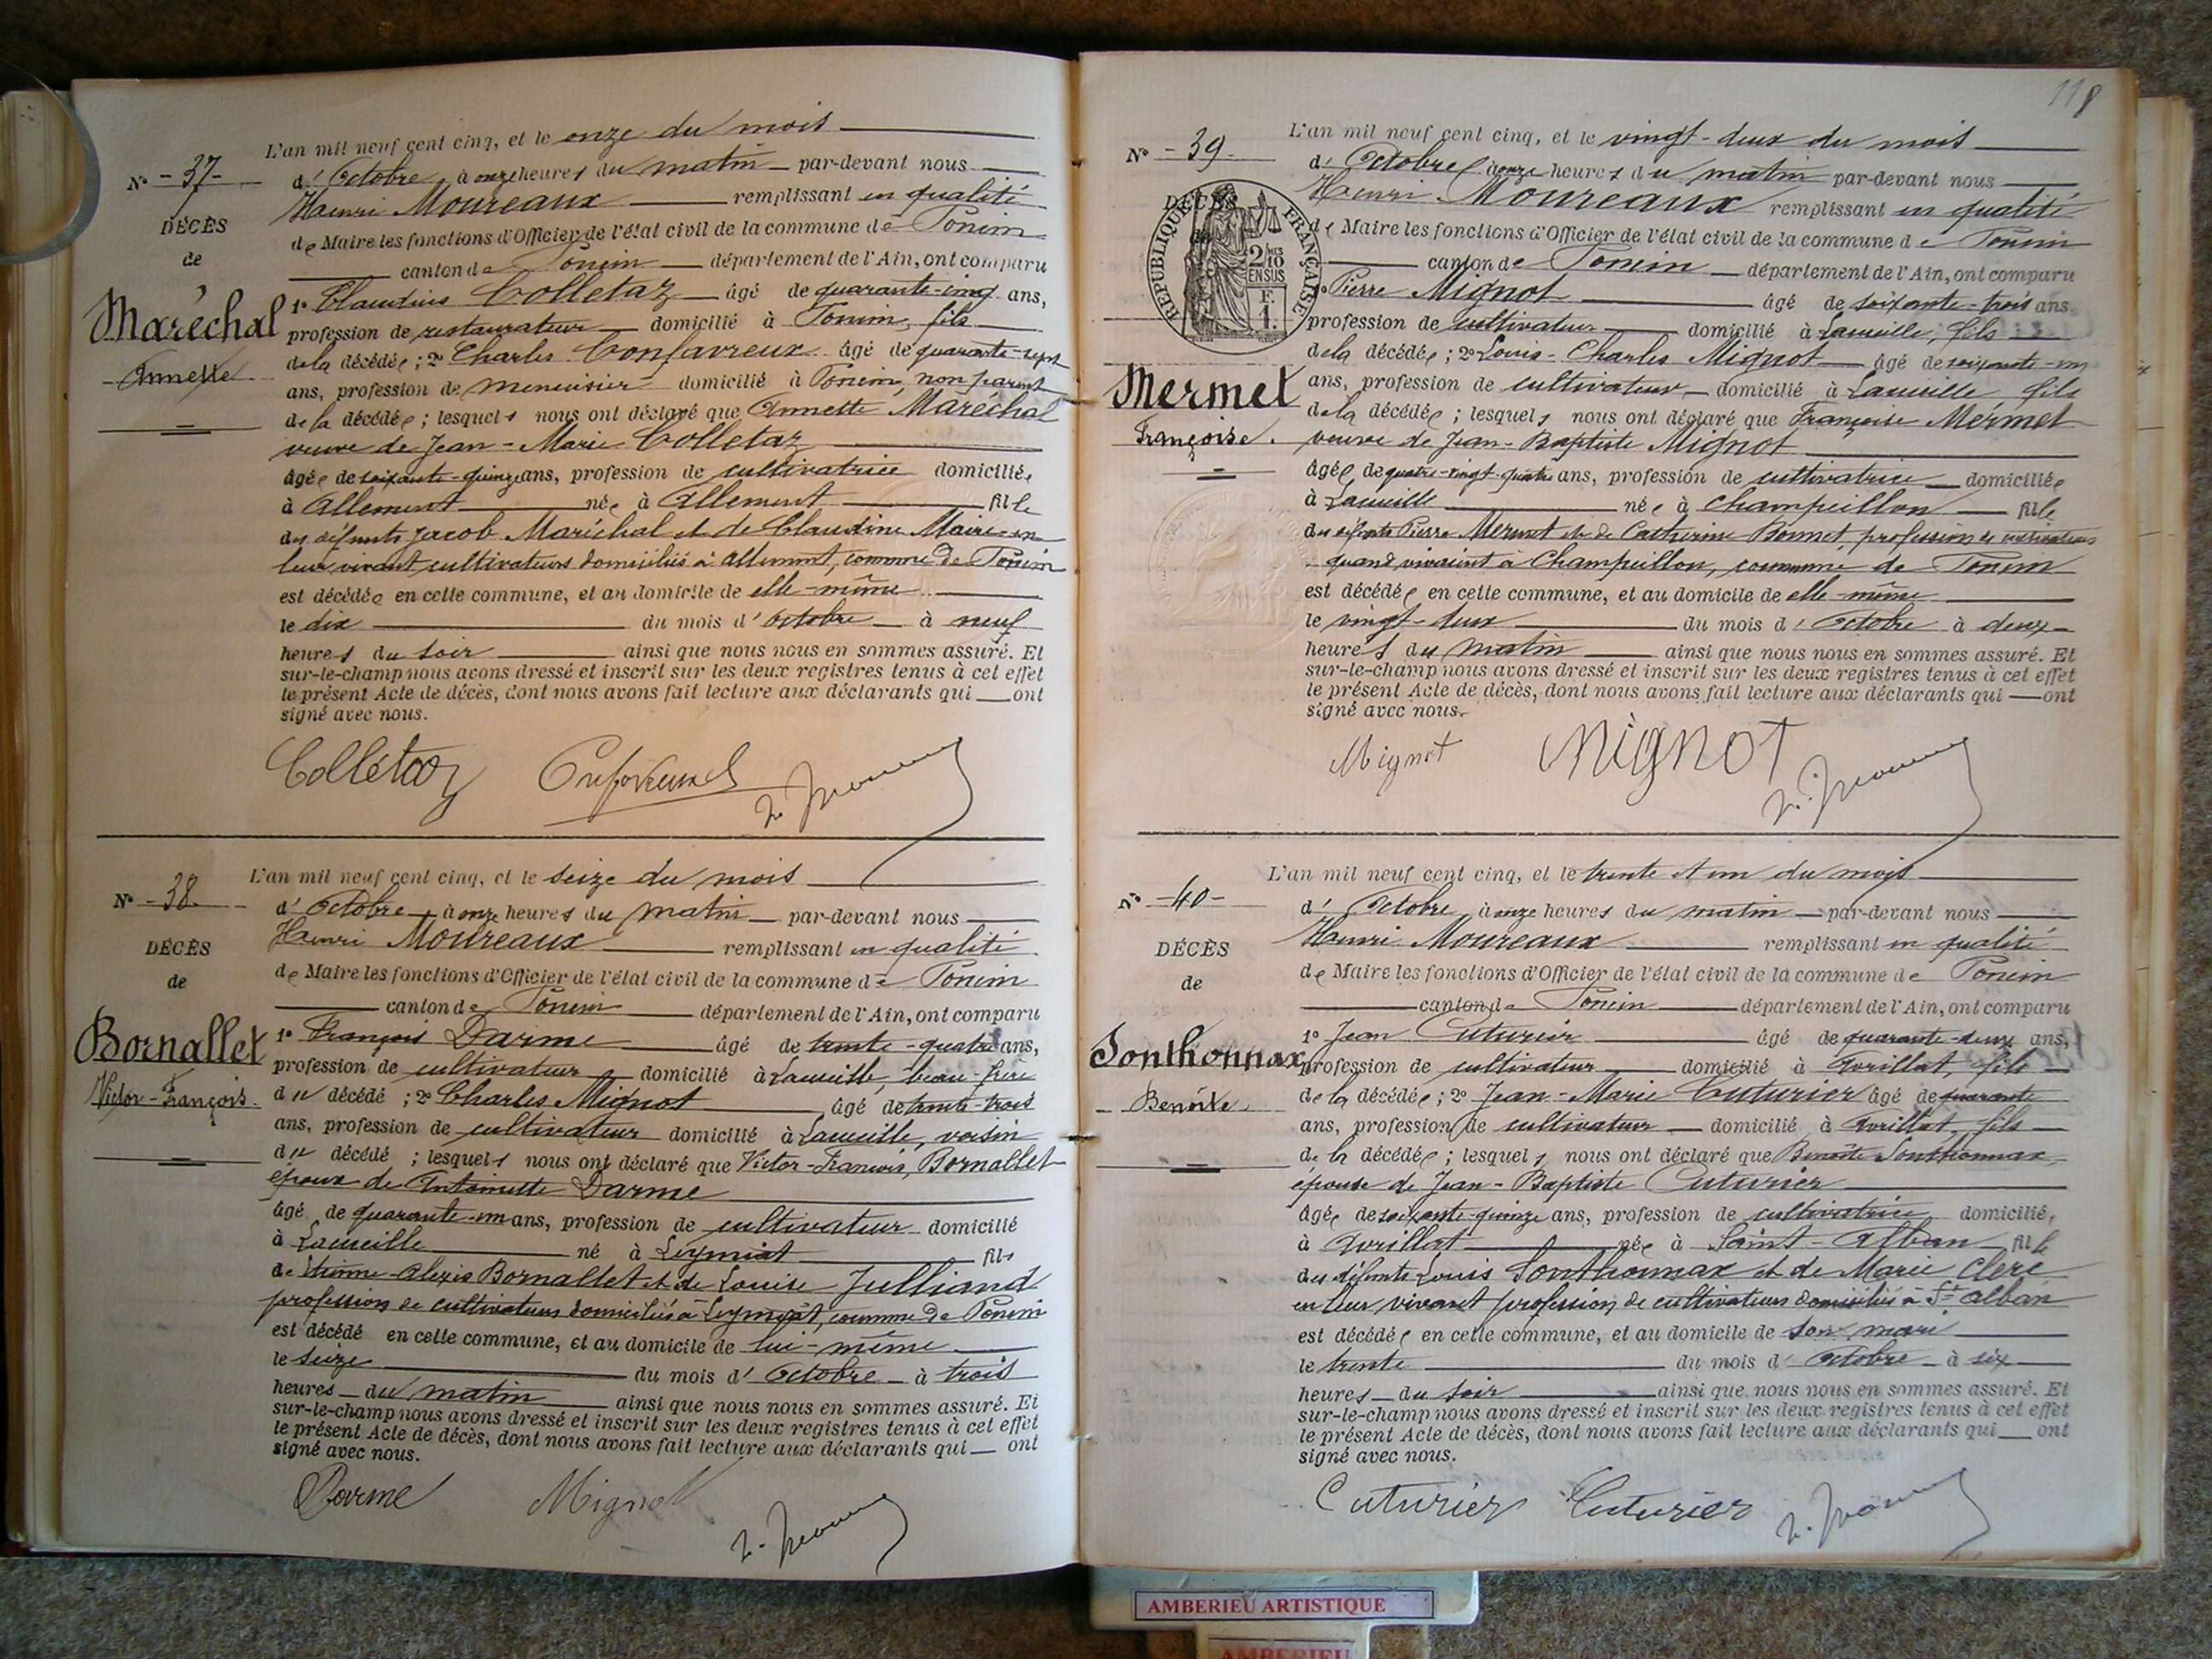 L'an mil neuf cent cinq, et le onze du mois
N° - 37 -
d'Octobre, à onze heures du matin par-devant nous
Henri Moureaux remplissant en qualité
DÉCÈS
de Maire les fonctions d'Officier de l'état civil de la commune de Poncin
de
canton de Poncin département de l'Ain, ont comparu
1° Claudius Colletaz âgé de quarante-cinq ans,
Maréchal
profession de restaurateur domicilié à Poncin, fils
de la décédée ; 2° Charles Confavreux âgé de quarante-sept
- Annette -
ans, profession de menuisier domicilié à Poncin, non parent
de la décédée ; lesquels nous ont déclaré que Annette Maréchal
veuve de Jean-Marie Colletaz
âgée de soixante-quinze ans, profession de cultivatrice domiciliée
à Allement née à Allement fille
des défunts Jacob Maréchal et de Claudine Maire en
leur vivant cultivateurs domiciliés à Allement, commune de Poncin
est décédée en cette commune, et au domicile de elle-même
le dix du mois d'octobre à neuf
heures du soir ainsi que nous nous en sommes assuré. Et
sur-le-champ nous avons dressé et inscrit sur les deux registres tenus à cet effet
le présent Acte de décès, dont nous avons fait lecture aux déclarants qui ont
signé avec nous.
Colletaz
L'an mil neuf cent cinq, et le seize du mois
N° - 38 -
d'Octobre à onze heures du matin par-devant nous
Henri Moureaux remplissant en qualité
DÉCÈS
de Maire les fonctions d'Officier de l'état civil de la commune de Poncin
de
canton de Poncin département de l'Ain, ont comparu
1° François Darme âgé de trente-quatre ans,
Bornallet
profession de cultivateur domicilié à Lacueille, beau-frère
Victor-François.
du décédé ; 2° Charles Mignot âgé de trente-trois
ans, profession de cultivateur domicilié à Lacueille, voisin
du décédé ; lesquels nous ont déclaré que Victor-François, Bornallet
époux de Antoinette Darme
âgé de quarante-un ans, profession de cultivateur domicilié
à Lacueille né à Leymiat fils
de Etienne-Alexis Bornallet et de Louise Julliand
profession de cultivateurs domiciliés à Leymiat, commune de Poncin
est décédé en cette commune, et au domicile de lui-même
le seize du mois d'Octobre à trois
heures du matin ainsi que nous nous en sommes assuré. Et
sur-le-champ nous avons dressé et inscrit sur les deux registres tenus à cet effet
le présent Acte de décès, dont nous avons fait lecture aux déclarants qui ont
signé avec nous.
Darme Mignot
118
L'an mil neuf cent cinq, et le vingt-deux du mois
N° - 39 -
d'Octobre à onze heures du matin par-devant nous
Henri Moureaux remplissant en qualité
DÉCÈS
RÉPUBLIQUE FRANÇAISE
2/10 EN SUS
F. 1.
de Maire les fonctions d'Officier de l'état civil de la commune de Poncin
canton de Poncin département de l'Ain, ont comparu
1° Pierre Mignot âgé de soixante-trois ans
profession de cultivateur domicilié à Lacueille, fils
de la décédée ; 2° Louis-Charles Mignot âgé de soixante-un
Mermet
ans, profession de cultivateur domicilié à Lacueille, fils
de la décédée ; lesquels nous ont déclaré que Françoise Mermet
Françoise.
veuve de Jean-Baptiste Mignot
âgée de quatre-vingt-quatre ans, profession de cultivatrice domiciliée
à Lacueille née à Champeillon fille
des défunts Pierre Mermet et de Catherine Bonnet profession de cultivateurs
quand vivaient à Champeillon, commune de Poncin
est décédée en cette commune, et au domicile de elle-même
le vingt-deux du mois d'Octobre à deux
heures du matin ainsi que nous nous en sommes assuré. Et
sur-le-champ nous avons dressé et inscrit sur les deux registres tenus à cet effet
le présent Acte de décès, dont nous avons fait lecture aux déclarants qui ont
signé avec nous.
Mignot Mignot
L'an mil neuf cent cinq, et le trente et un du mois
N° - 40 -
d'Octobre, à onze heures du matin par-devant nous
Henri Moureaux remplissant en qualité
DÉCÈS
de Maire les fonctions d'Officier de l'état civil de la commune de Poncin
de
canton de Poncin département de l'Ain, ont comparu
1° Jean Cuturier âgé de quarante-deux ans,
Sonthonnax
profession de cultivateur domicilié à Avrillat, fils
- Benoîte.
de la décédée ; 2° Jean-Marie Cuturier âgé de quarante
ans, profession de cultivateur domicilié à Avrillat, fils
de la décédée ; lesquels nous ont déclaré que Benoîte Sonthonnax
épouse de Jean-Baptiste Cuturier
âgée de soixante-quinze ans, profession de cultivatrice domiciliée
à Avrillat née à Saint-Alban fille
des défunts Louis Sonthonnax et de Marie Clerc
en leur vivant profession de cultivateurs domiciliés à St Alban
est décédée en cette commune, et au domicile de son mari
le trente du mois d'Octobre à six
heures du soir ainsi que nous nous en sommes assuré. Et
sur-le-champ nous avons dressé et inscrit sur les deux registres tenus à cet effet
le présent Acte de décès, dont nous avons fait lecture aux déclarants qui ont
signé avec nous.
Cuturier Cuturier
AMBERIEU ARTISTIQUE
AMBERIEU